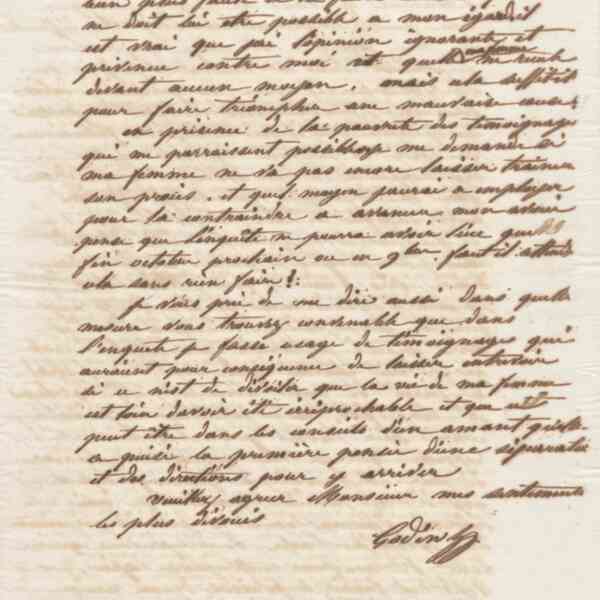 ne doit lui être possible a mon égard il
est vrai que j'ai l'opinion ignorante et
prévenue contre moi et quelle ne recule
devant aucun moyen. mais cela suffit-il
pour faire triompher une mauvaise cause?
en présence de la pauvreté des témoignages
qui me parraissent possibles je me demande si
ma femme ne va pas encore laisser traîner
son procès. et quel moyen j'aurai a employer
pour la contraindre a avancer mon avoué
pense que l'enquête ne pourra avoir lieu que
fin octobre prochain ou en 9bre. faut-il attendre
cela sans rien faire!
je vous prie de me dire aussi dans quelle
mesure vous trouvez convenable que dans
l'enquête je fasse usage de témoignages qui
auraient pour conséquence de laisser entrevoir
si ce n'est de dévoiler que la vie de ma femme
est loin d'avoir été irréprochable et que c'est
peut être dans les conseils d'un amant qu'elle
a puisé la première pensée d'une séparation
et des directions pour y arriver
Veuillez agréer Monsieur mes sentiments
les plus dévoués
Godin